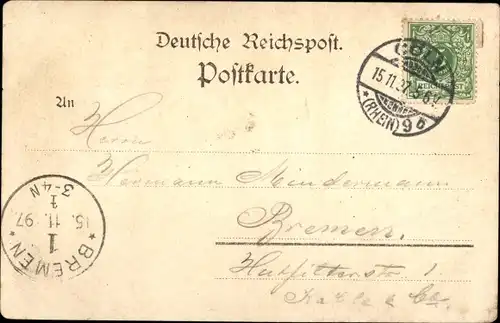 Deutsche Reichspost.
Postkarte.
An
Herrn
Hermann Mindermann
Bremen.
Hutfilterstr. 1
& Co.
CÖLN
15.11.97
(RHEIN) 9 b
BREMEN
1
15. 11. 97.
3-4 N